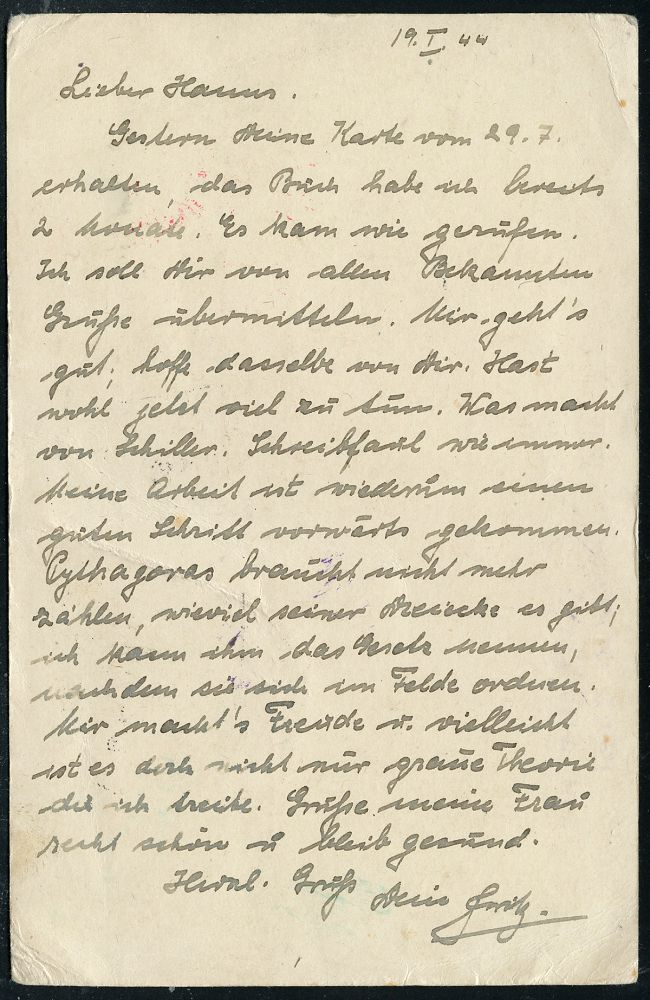 19. I. 44
Lieber Hanns.
Gestern Deine Karte vom 29. 7.
erhalten, das Buch habe ich bereits
2 Monate. Es kam wie gerufen.
Ich soll Dir von allen Bekannten
Grüße übermitteln. Mir geht's
gut, hoffe dasselbe von Dir. Hast
wohl jetzt viel zu tun. Was macht
von Schiller. Schreibfaul wie immer.
Meine Arbeit ist wiederum einen
guten Schritt vorwärts gekommen.
Pythagoras braucht nicht mehr
zählen, wieviel seiner Dreiecke es gibt,
ich kann ihm das Gesetz nennen,
nachdem sie sich im Felde ordnen.
Mir macht's Freude u. vielleicht
ist es doch nicht nur graue Theorie
die ich treibe. Grüße meine Frau
recht schön u bleib gesund.
Herzl. Gruß
Dein Fritz.